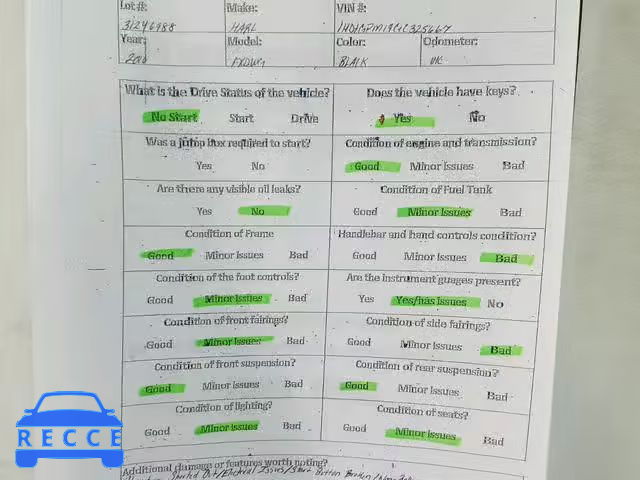 Lot#: Make: VIN #:
31246988 HARL
Year: Model: Color: Odometer:
FXDWG BLACK UNK
What is the Drive Status of the vehicle? Does the vehicle have keys?
No Start Start Drive Yes No
Was a jump box required to start? Condition of engine and transmission?
Yes No Good Minor Issues Bad
Are there any visible oil leaks? Condition of Fuel Tank
Yes No Good Minor Issues Bad
Condition of Frame Handlebar and hand controls condition?
Good Minor Issues Bad Good Minor Issues Bad
Condition of the foot controls? Are the instrument guages present?
Good Minor Issues Bad Yes Yes/has Issues No
Condition of front fairings? Condition of side fairings?
Good Minor Issues Bad Good Minor Issues Bad
Condition of front suspension? Condition of rear suspension?
Good Minor Issues Bad Good Minor Issues Bad
Condition of lighting? Condition of seats?
Good Minor Issues Bad Good Minor Issues Bad
Additional damage or features worth noting?
RECCE